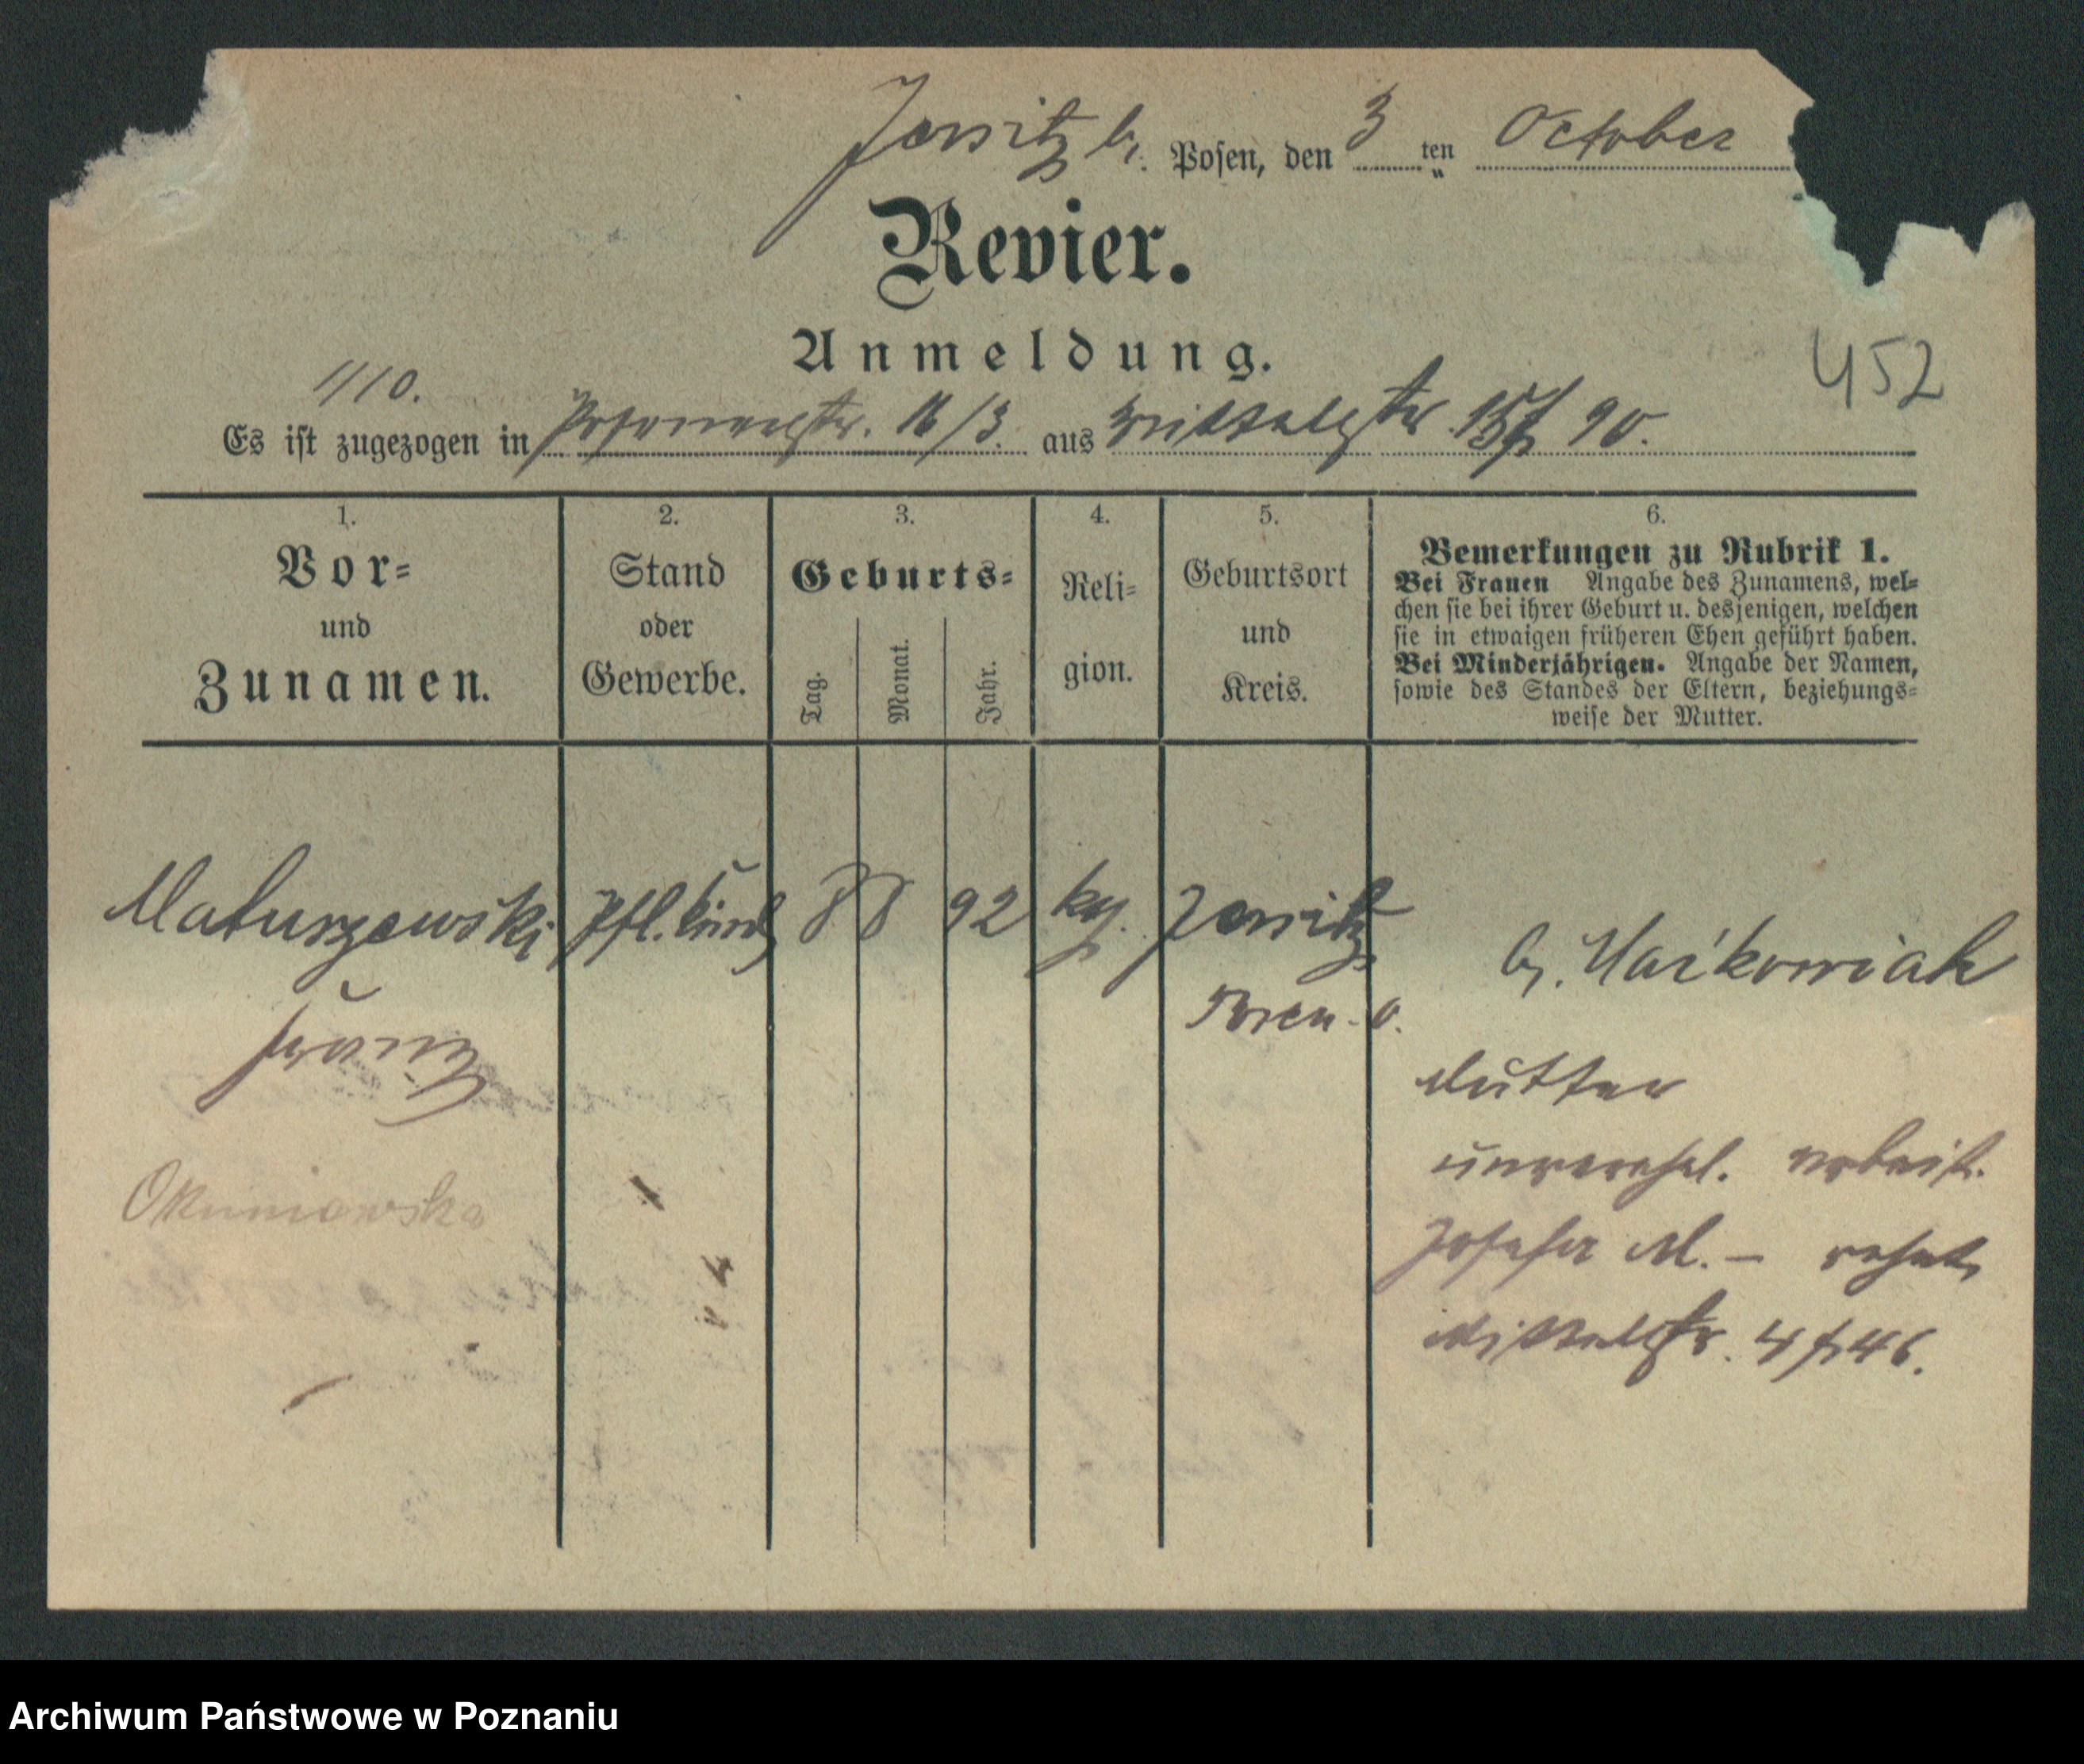 Jersitz b. Posen, den 3 ten October
Revier.
Anmeldung.
452
1/10.
Es ist zugezogen in Posenerstr. 16/3. aus Mittelstr. 15 90.
1. 2. 3. 4. 5. 6.
Vor- und Zunamen.
Stand oder Gewerbe.
Geburts-
Tag. Monat. Jahr.
Religion.
Geburtsort und Kreis.
Bemerkungen zu Rubrik 1.
Bei Frauen Angabe des Zunamens, wel-
chen sie bei ihrer Geburt u. desjenigen, welchen
sie in etwaigen früheren Ehen geführt haben.
Bei Minderjährigen. Angabe der Namen,
sowie des Standes der Eltern, beziehungs-
weise der Mutter.
Matuszewski Pfl. kind 8 8 92 kg. Jersitz b. Maćkowiak
Franz Posen O.
Mutter
unverehel. Arbeit.
Okuniewska
Josefa M. –
Mittelstr. 46.
Archiwum Państwowe w Poznaniu